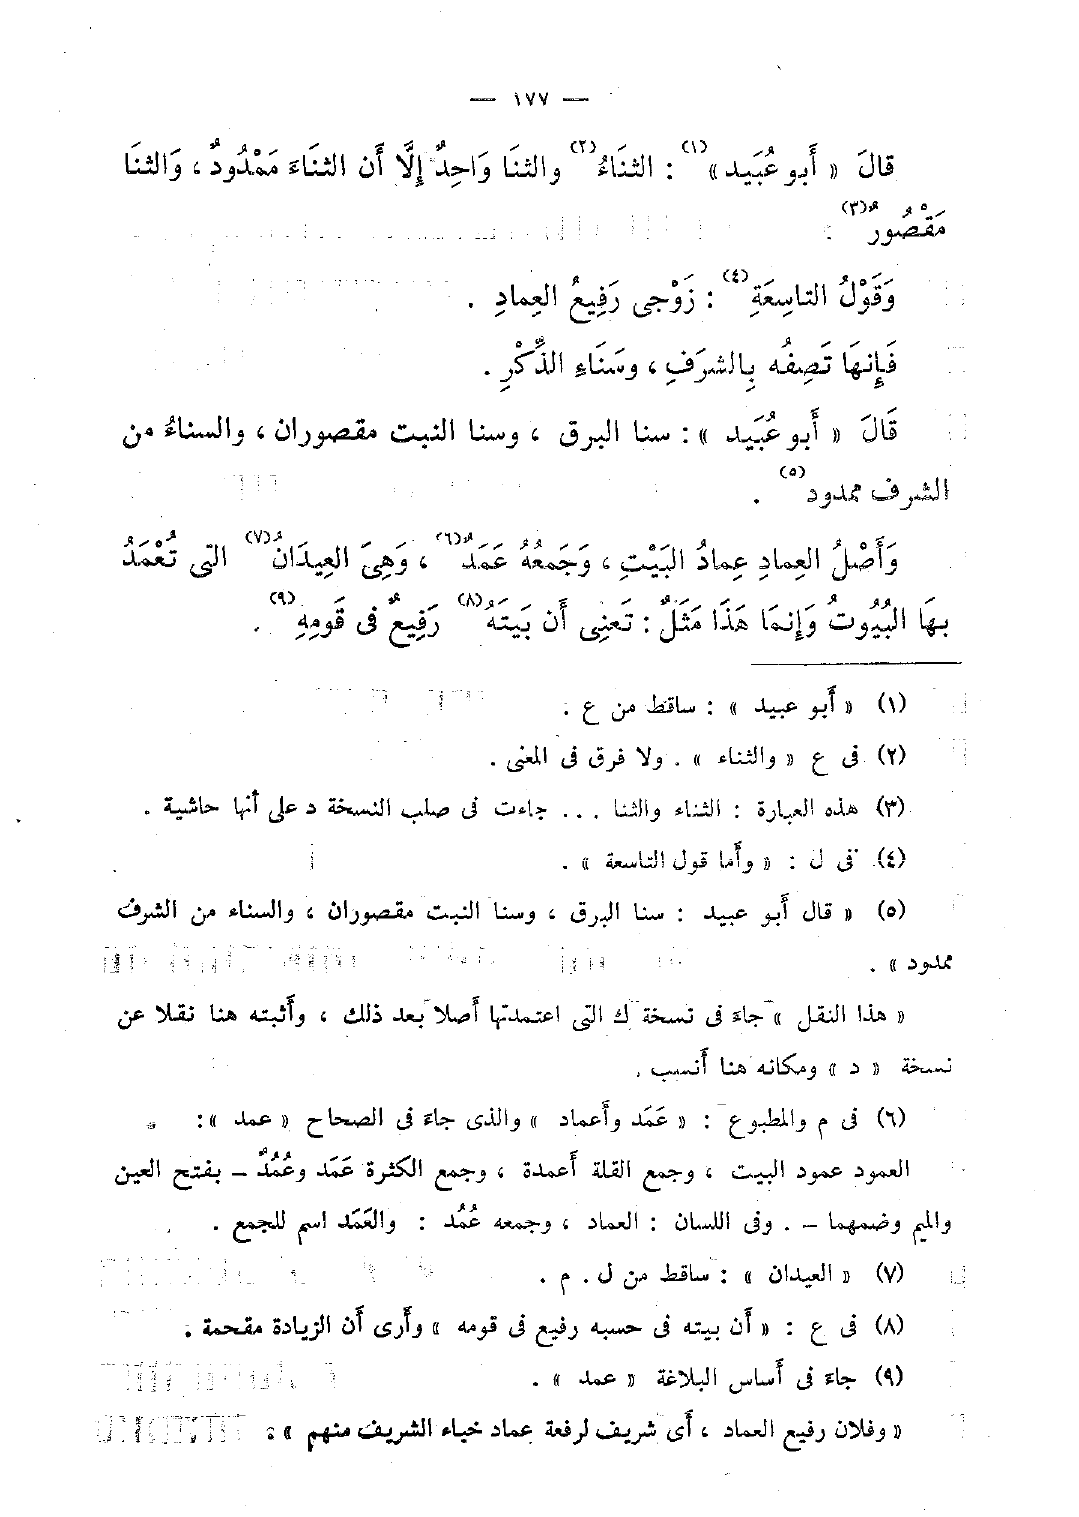 — ١٧٧ —
قالَ « أَبو عُبَيد »(١) : الثنَاءُ(٢) والثنَا وَاحِدٌ إلَّا أَن الثنَاءَ مَمْدُودٌ ، وَالثنَا
مَقْصُورٌ(٣)
وَقَوْلُ التاسِعَةِ(٤) : زَوْجى رَفِيعُ العِمادِ .
فَإِنهَا تَصِفُه بِالشرَفِ ، وسَنَاءِ الذِّكْرِ .
قَالَ « أَبو عُبَيد » : سنا البرق ، وسنا النبت مقصوران ، والسناءُ من
الشرف ممدود(٥) .
وَأَصْلُ العِمادِ عِمادُ البَيْتِ ، وَجَمعُهُ عَمَدٌ(٦) ، وَهِىَ العِيدَانُ(٧) التى تُعْمَدُ
بهَا البُيُوتُ وَإِنمَا هَذَا مَثَلٌ : تَعنِى أَن بَيتَهُ(٨) رَفِيعٌ فى قَومِهِ(٩) .
(١) « أَبو عبيد » : ساقط من ع .
(٢) فى ع « والثناء » . ولا فرق فى المعنى .
(٣) هذه العبارة : الثناء والثنا ... جاءت فى صلب النسخة د على أنها حاشية .
(٤) فى ل : « وأَما قول التاسعة » .
(٥) « قال أَبو عبيد : سنا البرق ، وسنا النبت مقصوران ، والسناء من الشرف
ممدود » .
« هذا النقل » جاءَ فى نسخة ك التى اعتمدتها أَصلا بعد ذلك ، وأَثبته هنا نقلا عن
نسخة « د » ومكانه هنا أَنسب .
(٦) فى م والمطبوع : « عَمَد وأَعماد » والذى جاءَ فى الصحاح « عمد » :
العمود عمود البيت ، وجمع القلة أَعمدة ، وجمع الكثرة عَمَد وعُمُدٌ – بفتح العين
والميم وضمهما – . وفى اللسان : العماد ، وجمعه عُمُد : والعَمَد اسم للجمع .
(٧) « العيدان » : ساقط من ل . م .
(٨) فى ع : « أَن بيته فى حسبه رفيع فى قومه » وأَرى أَن الزيادة مقحمة .
(٩) جاءَ فى أَساس البلاغة « عمد » .
« وفلان رفيع العماد ، أَى شريف لرفعة عماد خباء الشريف منهم » .